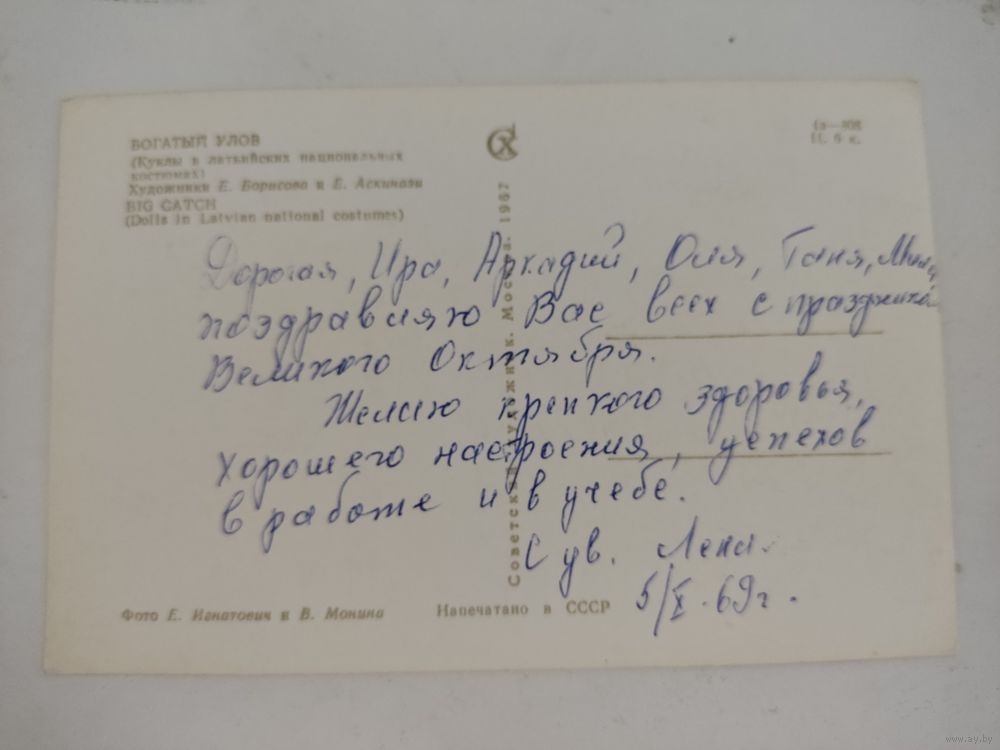 БОГАТЫЙ УЛОВ
(Куклы в латвийских национальных
костюмах)
Художники Е. Борисова и Е. Аскинази
BIG CATCH
(Dolls in Latvian national costumes)
СХ
6 к.
Советский художник. Москва. 1967
Дорогая, Ира, Аркадий, Оля, Таня,
поздравляю Вас всех с праздником
Великого Октября.
Желаю крепкого здоровья,
хорошего настроения, успехов
в работе и в учебе.
С ув. Лена.
5/X.69г.
Фото Е. Игнатович и В. Монина
Напечатано в СССР
www.ay.by